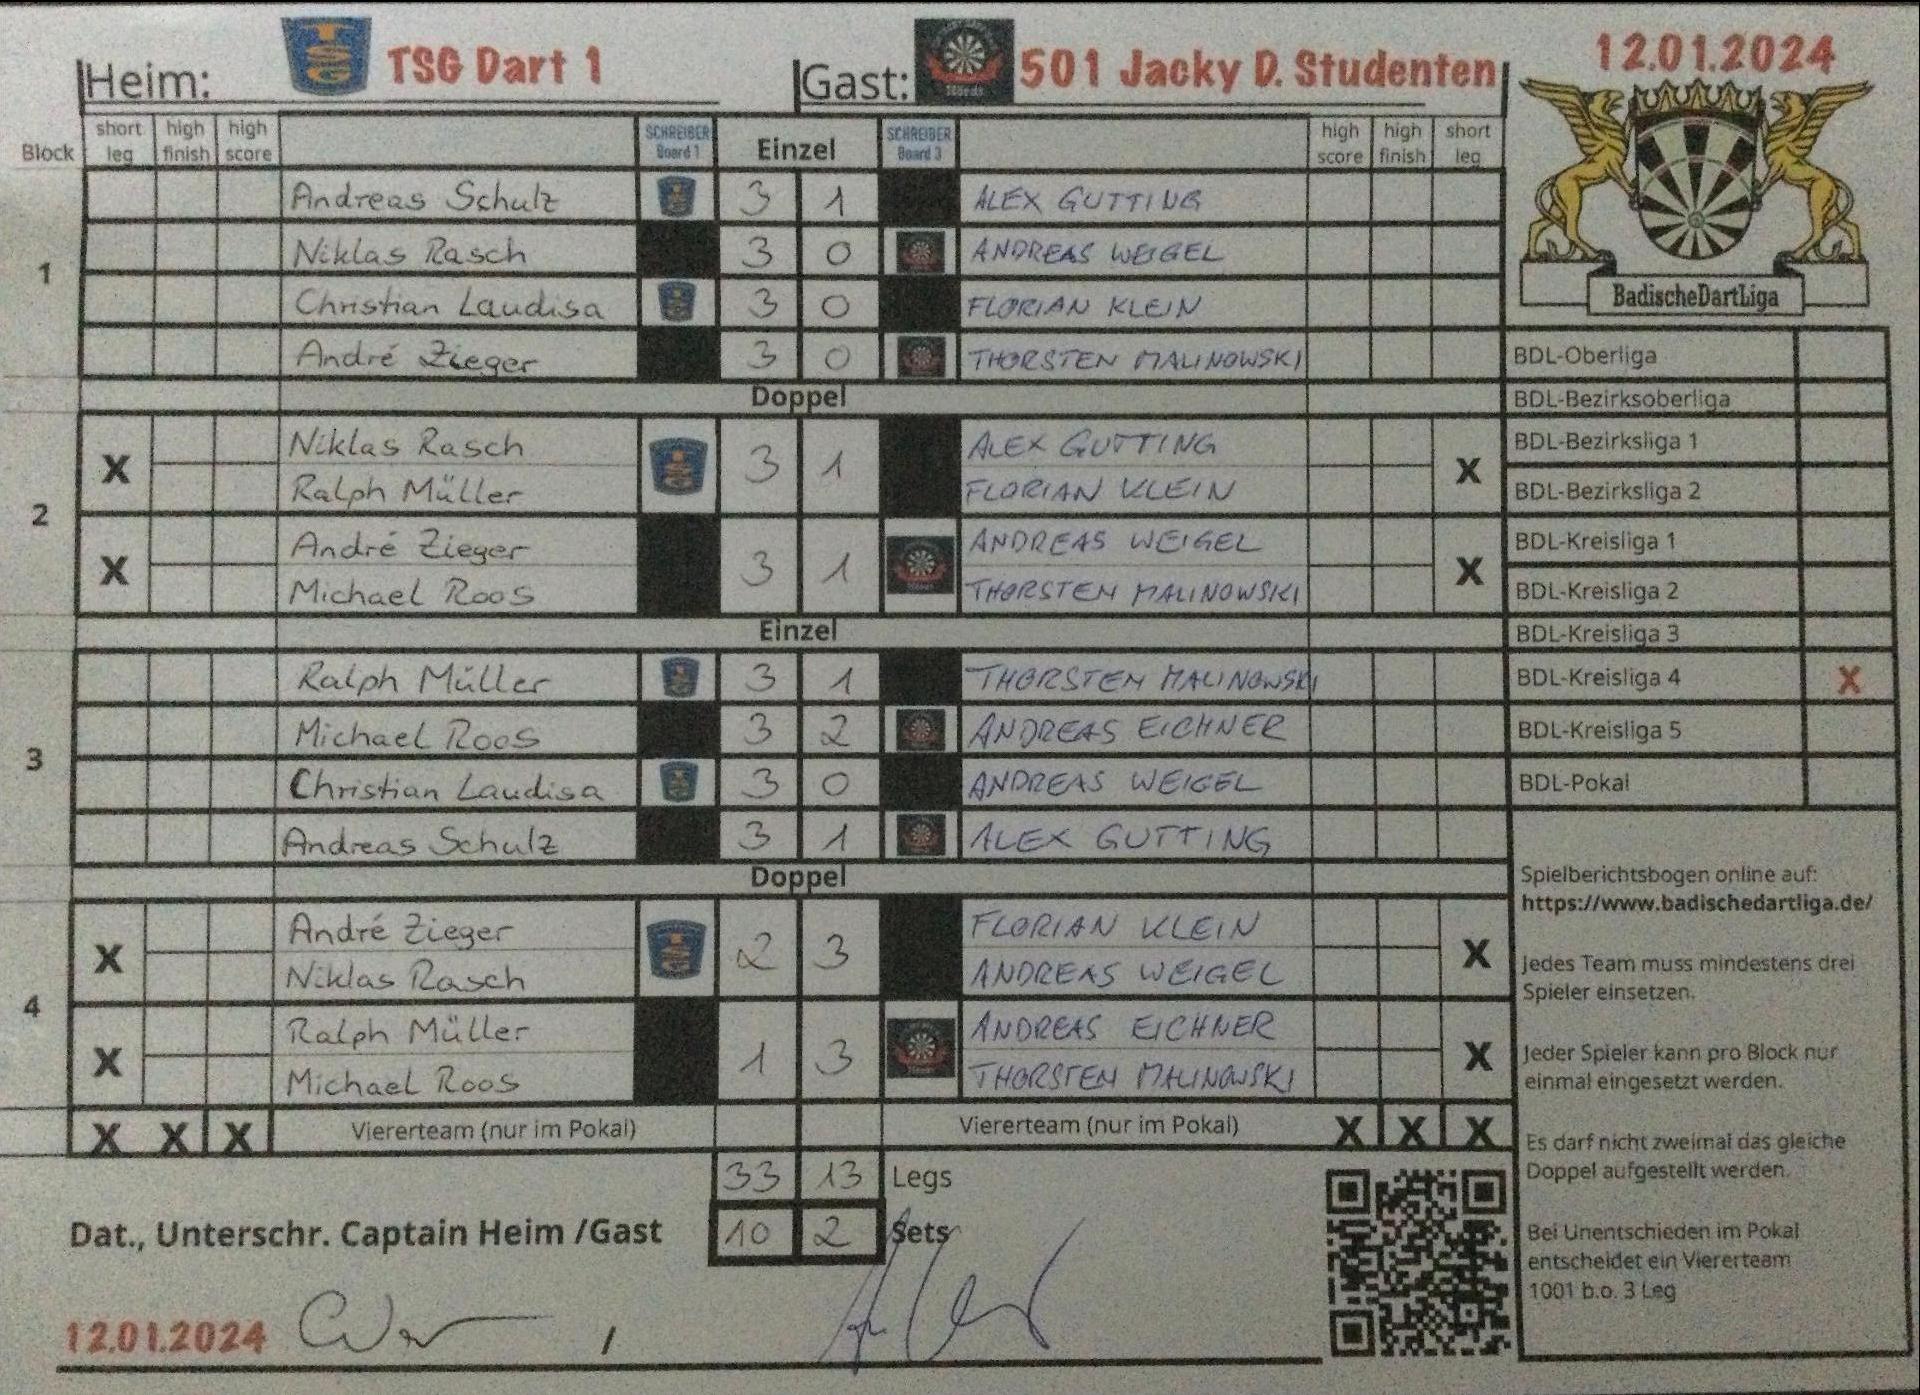 Heim: TSG Dart 1 Gast: 501 Jacky D. Studenten 12.01.2024
Block short leg high finish high score SCHREIBER Board 1 Einzel SCHREIBER Board 3 high score high finish short leg
1
Andreas Schulz 3 1 ALEX GUTTING
Niklas Rasch 3 0 ANDREAS WEIGEL
Christian Laudisa 3 0 FLORIAN KLEIN
André Zieger 3 0 THORSTEN MALINOWSKI
Doppel
2
X Niklas Rasch 3 1 ALEX GUTTING X
Ralph Müller FLORIAN KLEIN
X André Zieger 3 1 ANDREAS WEIGEL X
Michael Roos THORSTEN MALINOWSKI
Einzel
3
Ralph Müller 3 1 THORSTEN MALINOWSKI
Michael Roos 3 2 ANDREAS EICHNER
Christian Laudisa 3 0 ANDREAS WEIGEL
Andreas Schulz 3 1 ALEX GUTTING
Doppel
4
X André Zieger 2 3 FLORIAN KLEIN X
Niklas Rasch ANDREAS WEIGEL
X Ralph Müller 1 3 ANDREAS EICHNER X
Michael Roos THORSTEN MALINOWSKI
X X X Viererteam (nur im Pokal) Viererteam (nur im Pokal) X X X
33 13 Legs
Dat., Unterschr. Captain Heim /Gast 10 2 Sets
12.01.2024 /
BadischeDartLiga
BDL-Oberliga
BDL-Bezirksoberliga
BDL-Bezirksliga 1
BDL-Bezirksliga 2
BDL-Kreisliga 1
BDL-Kreisliga 2
BDL-Kreisliga 3
BDL-Kreisliga 4 X
BDL-Kreisliga 5
BDL-Pokal
Spielberichtsbogen online auf:
https://www.badischedartliga.de/
Jedes Team muss mindestens drei
Spieler einsetzen.
Jeder Spieler kann pro Block nur
einmal eingesetzt werden.
Es darf nicht zweimal das gleiche
Doppel aufgestellt werden.
Bei Unentschieden im Pokal
entscheidet ein Viererteam
1001 b.o. 3 Leg